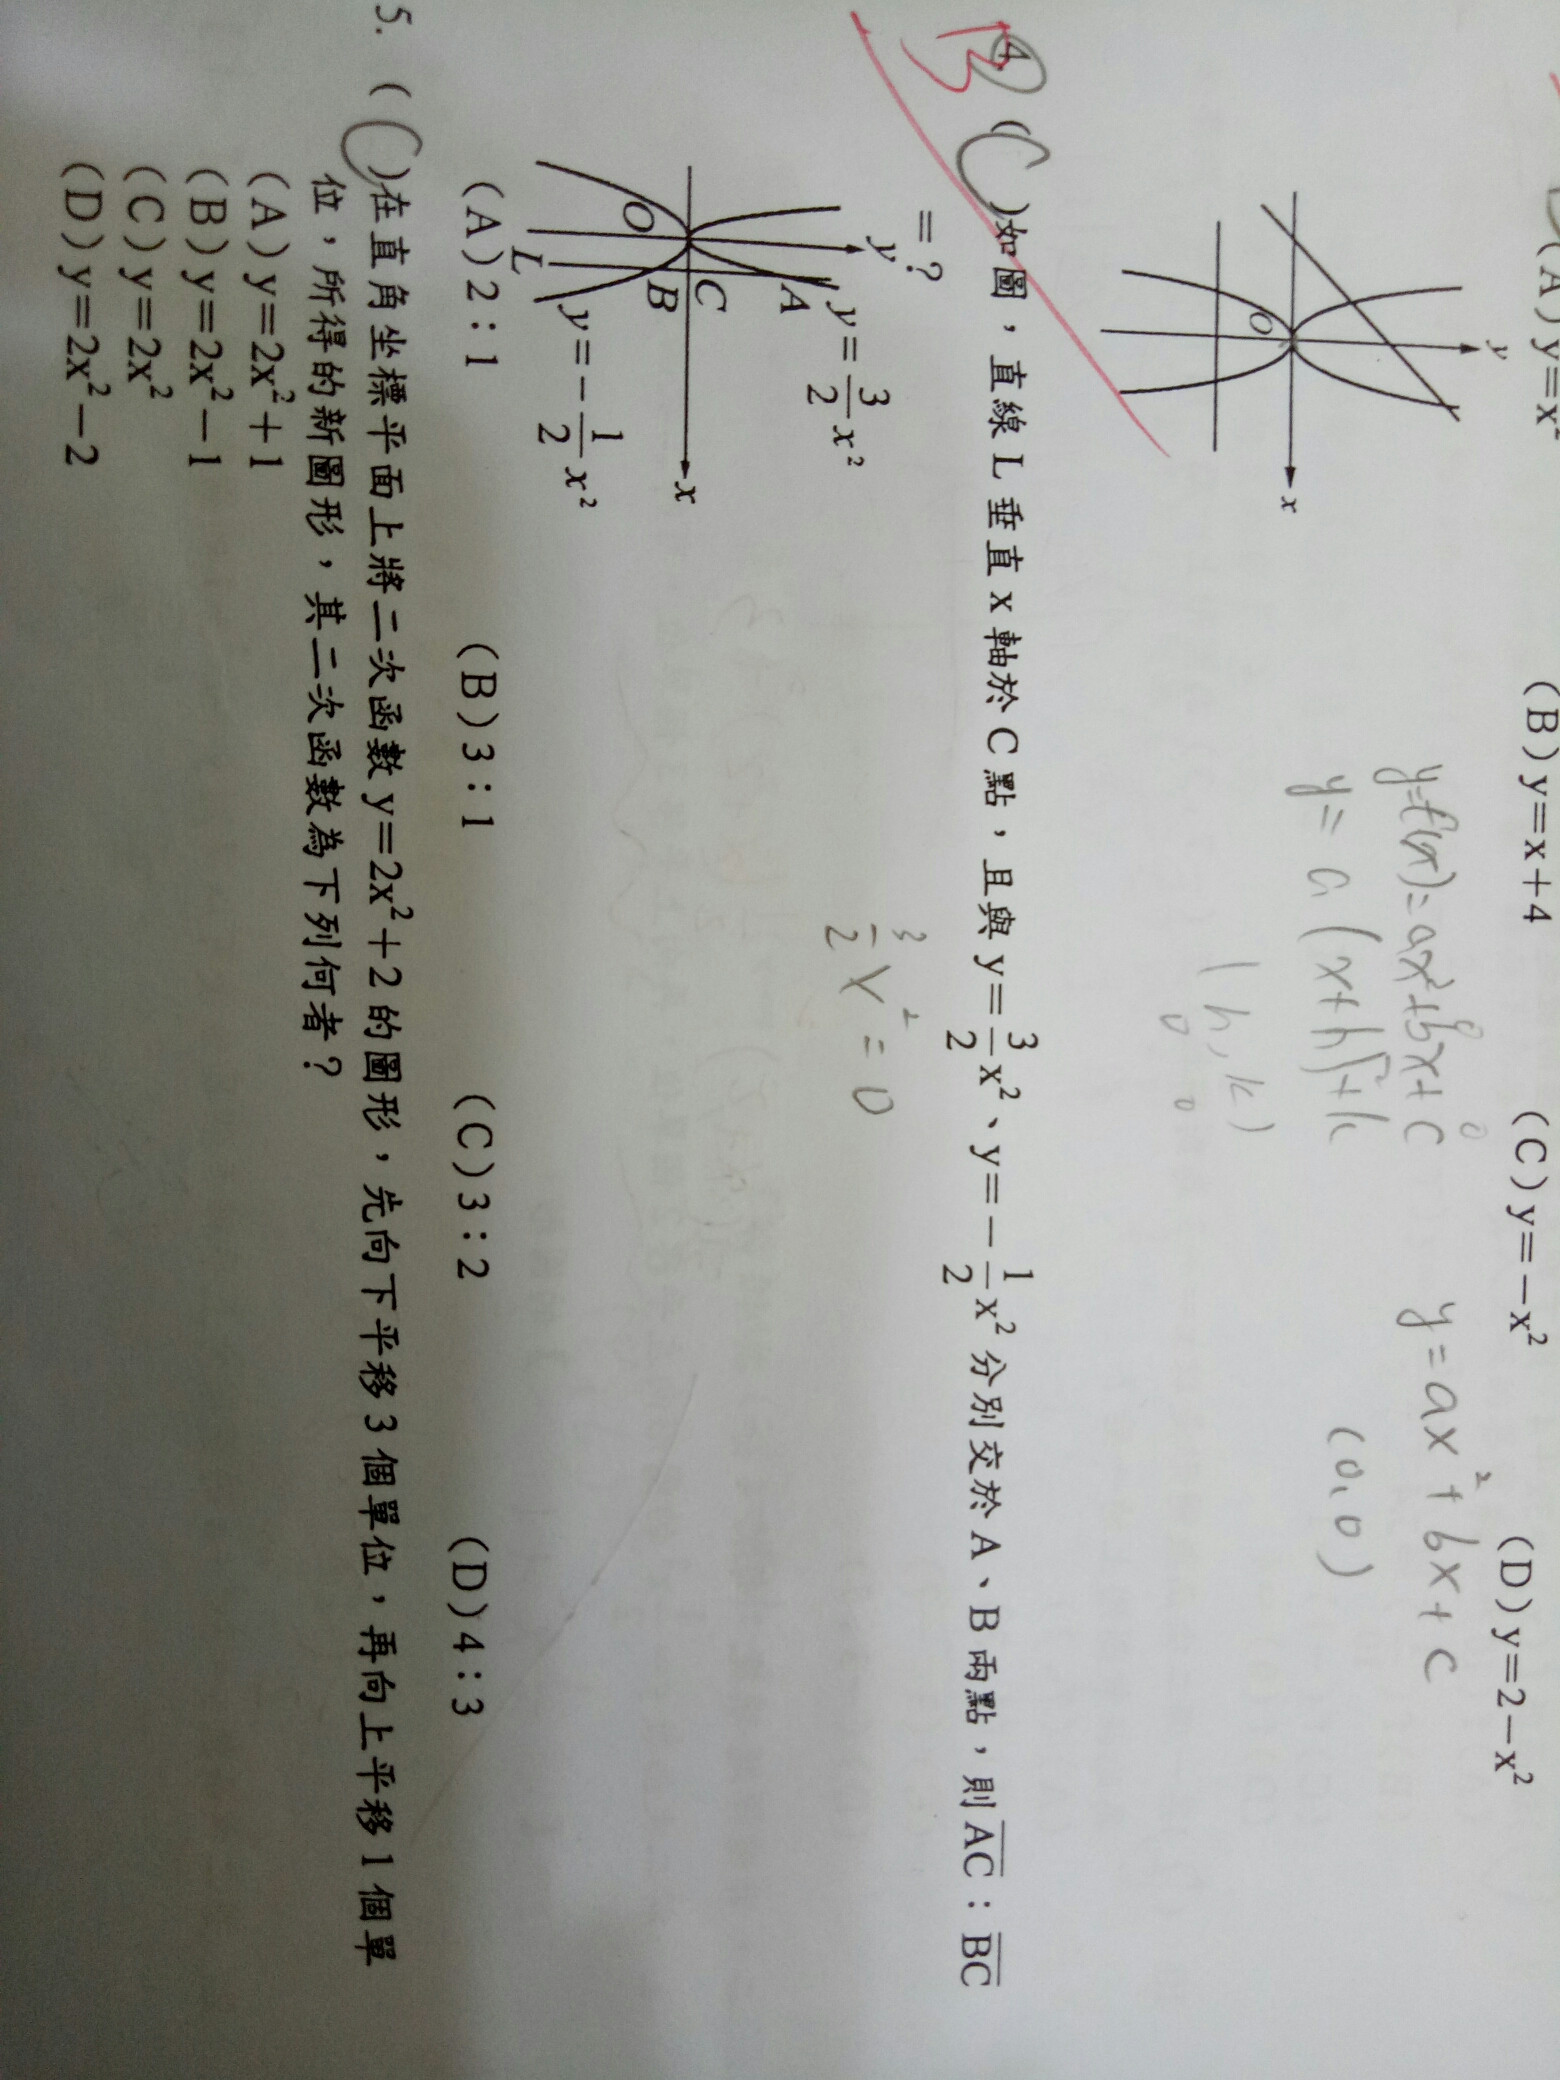 (A) y=x²
(B) y=x+4
(C) y=-x²
(D) y=2-x²
y
x
O
y=f(x)=ax²+bx+c
0 0
y=a(x+h)²+k
(h,k)
0 0
y=ax²+bx+c
(0,0)
B
4. (C)如圖，直線L垂直x軸於C點，且與y=3/2x²、y=-1/2x²分別交於A、B兩點，則AC：BC
=？
3/2x²=0
y
y=3/2x²
A
C
x
O
B
L
y=-1/2x²
(A)2：1
(B)3：1
(C)3：2
(D)4：3
5. (C)在直角坐標平面上將二次函數y=2x²+2的圖形，先向下平移3個單位，再向上平移1個單
位，所得的新圖形，其二次函數為下列何者？
(A) y=2x²+1
(B) y=2x²-1
(C) y=2x²
(D) y=2x²-2